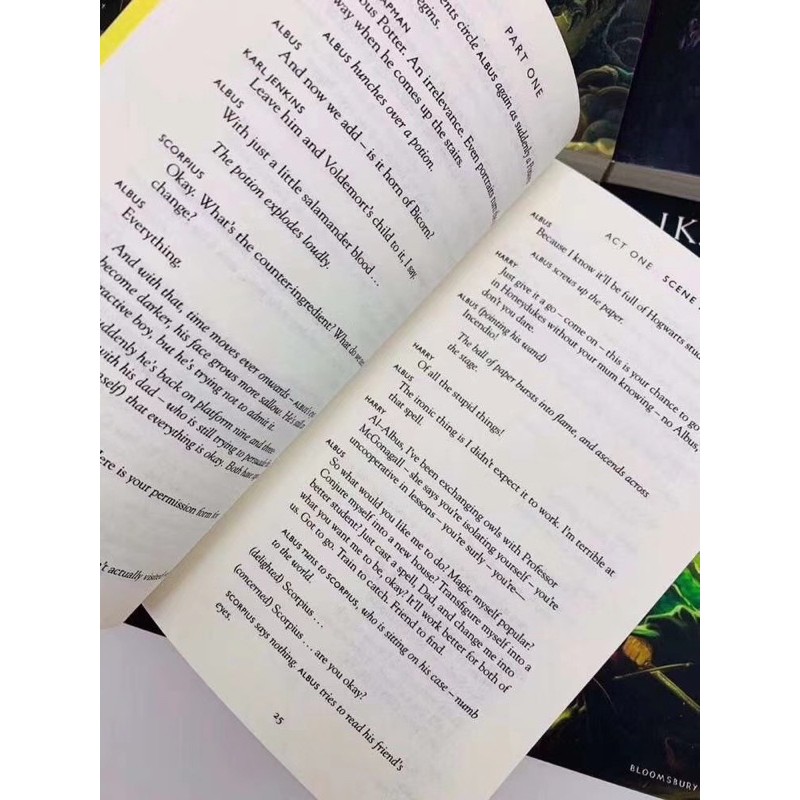 PART ONE
ents circle ALBUS again as suddenly a
begins.
APMAN
ous Potter. An irrelevance. Even portraits turn
way when he comes up the stairs.
ALBUS hunches over a potion.
ALBUS
And now we add – is it horn of Bicorn?
KARL JENKINS
Leave him and Voldemort's child to it, I say.
ALBUS
With just a little salamander blood . . .
The potion explodes loudly.
SCORPIUS
Okay. What's the counter-ingredient? What do we
change?
ALBUS
Everything.
And with that, time moves ever onwards – ALBUS's
become darker, his face grows more sallow. He's
ractive boy, but he's trying not to admit it.
uddenly he's back on platform nine and three
with his dad – who is still trying to persuade
mself) that everything is okay. Both have
Here is your permission form
't actually visited
ACT ONE SCENE
ALBUS
Because I know it'll be full of Hogwarts
ALBUS screws up the paper.
HARRY
Just give it a go – come on – this is your chance to go
in Honeydukes without your mum knowing – no Albus,
don't you dare.
ALBUS (pointing his wand)
Incendio!
The ball of paper bursts into flame, and ascends across
the stage.
HARRY
Of all the stupid things!
ALBUS
The ironic thing is I didn't expect it to work. I'm terrible at
that spell.
HARRY
Al–Albus, I've been exchanging owls with Professor
McGonagall – she says you're isolating yourself – you're
uncooperative in lessons – you're surly – you're—
ALBUS
So what would you like me to do? Magic myself popular?
Conjure myself into a new house? Transfigure myself into a
better student? Just cast a spell, Dad, and change me into
what you want me to be, okay? It'll work better for both of
us. Got to go. Train to catch. Friend to find.
ALBUS runs to SCORPIUS, who is sitting on his case – numb
to the world.
(delighted) Scorpius . . .
(concerned) Scorpius . . . are you okay?
SCORPIUS says nothing. ALBUS tries to read his friend's
eyes.
25
J.K.
BLOOMSBURY